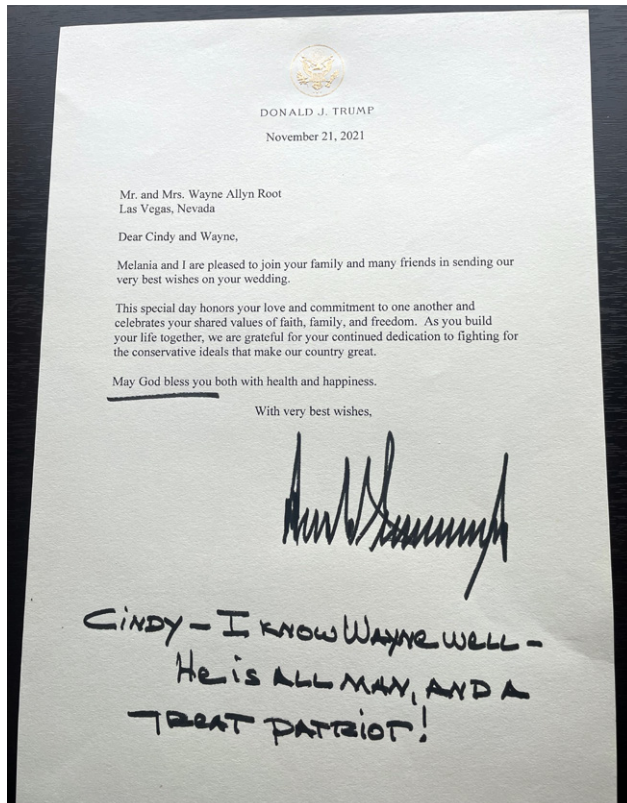 DONALD J. TRUMP
November 21, 2021
Mr. and Mrs. Wayne Allyn Root
Las Vegas, Nevada
Dear Cindy and Wayne,
Melania and I are pleased to join your family and many friends in sending our
very best wishes on your wedding.
This special day honors your love and commitment to one another and
celebrates your shared values of faith, family, and freedom.  As you build
your life together, we are grateful for your continued dedication to fighting for
the conservative ideals that make our country great.
May God bless you both with health and happiness.
With very best wishes,
CiNDY – I KNOW WAYNE WELL –
He is ALL MAN, AND A
GREAT PATRIOT!